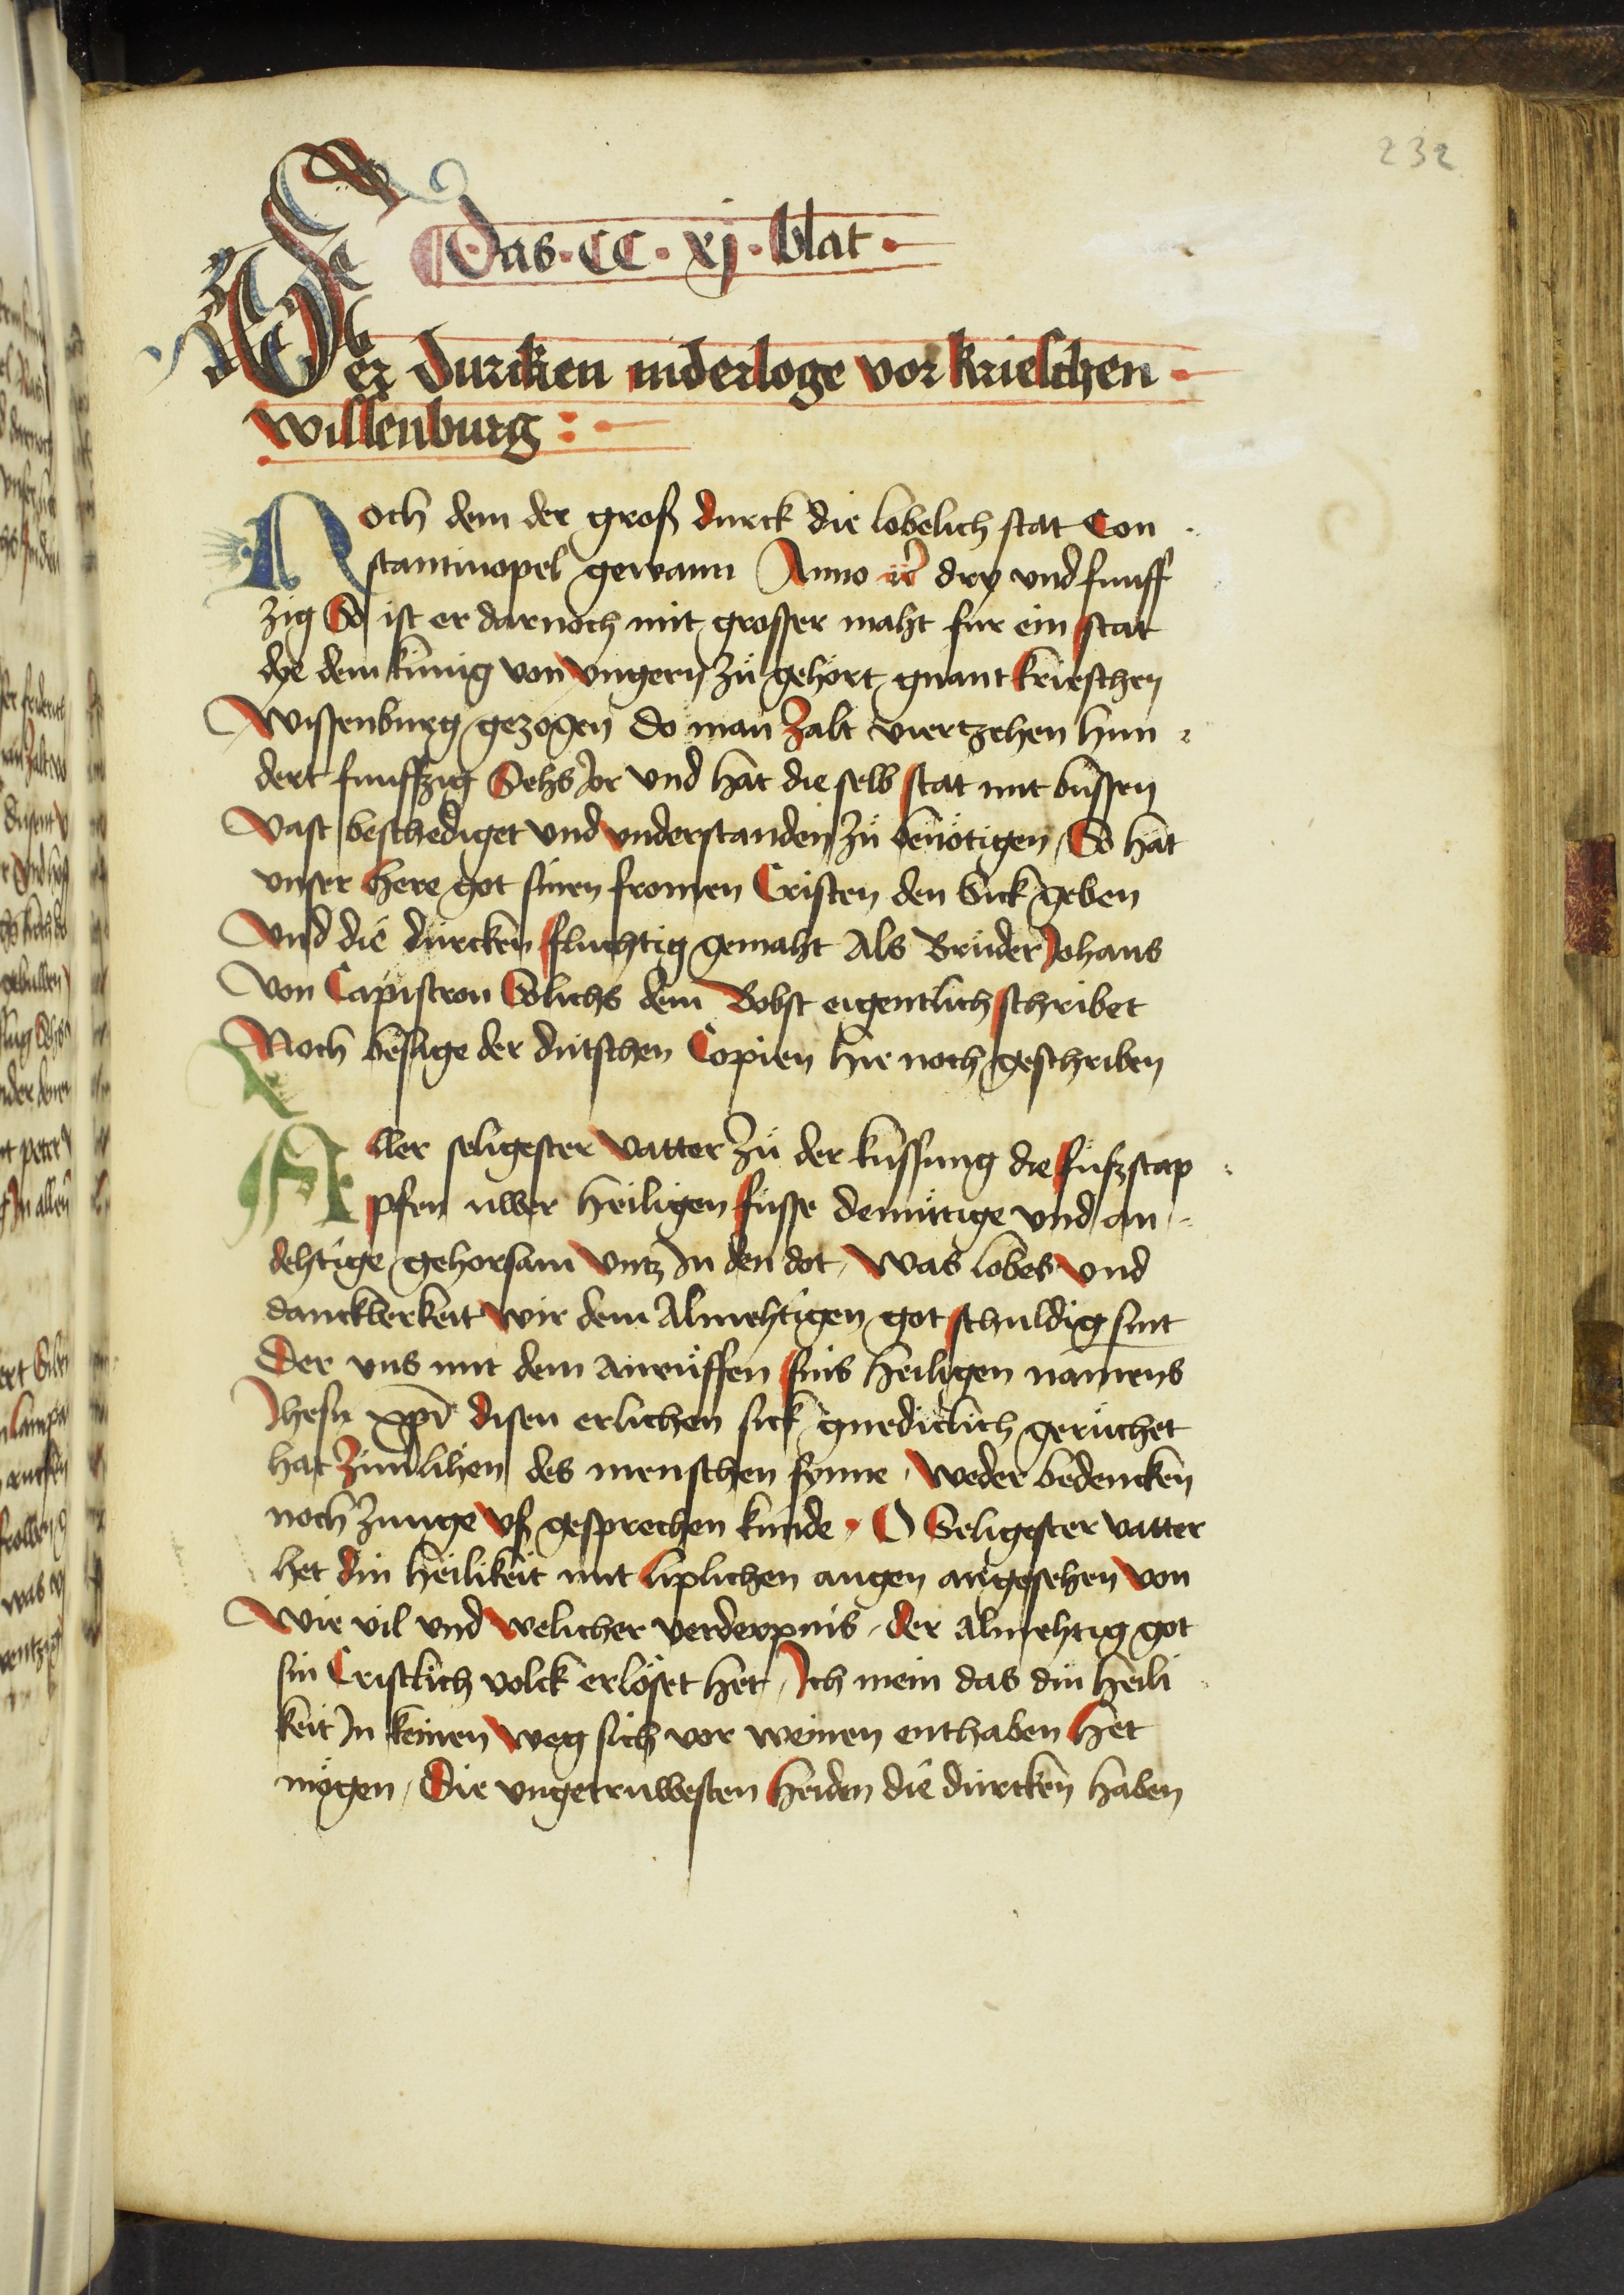 232
Das · CC · xj · blat ·
Der durcken niderloge vor krieschen
wissenburg :
Noch dem der groß durck die lobelich stat Con
stantinopel gewann Anno dry und funff
zig So ist er darnoch mit grosser maht fur ein stat
dye dem kunig von vngern zů gehört gnant krieschen
Wissenburg gezogen do man zalt viertzehen hun
dert funffzig Sehs Jor vnd hat die selb stat mit buͤssen
Vast beschediget vnd vnderstanden zů benötigen / So hat
vnser here got sinen fromen Cristen den Sick geben
Vnd die durcken fluchtig gemaht Als Bruder Johans
Von Capistron Solichs dem Bobst eigentlich schribet
Noch besage der dutschen Copien hie noch geschriben
Aller seligester Vatter zů der kussung die fußstap
pfen uwer heiligen fusse demuͤtige vnd an
dehtige gehorsam vntz In den dot / Was lobes vnd
danckberkeit wir dem Almehtigen got schuldig sint
Der vns mit dem anruͤffen sins heiligen namens
Jhesu xpi disen erlichen sick gnediclich geruͦchet
hat zimlihen des menschen synne / weder bedencken
noch zunge vß gesprechen kunde · O Seligester vatter
het din heilikeit mit liplichen augen angesehen von
Wie vil vnd welicher verderpnis / der almehtig got
sin Cristlich volck erlöset het / Ich mein das din heili
keit In keinen weg sich vor weinen enthaben het
mögen / Die vngetruwesten heiden die durcken haben